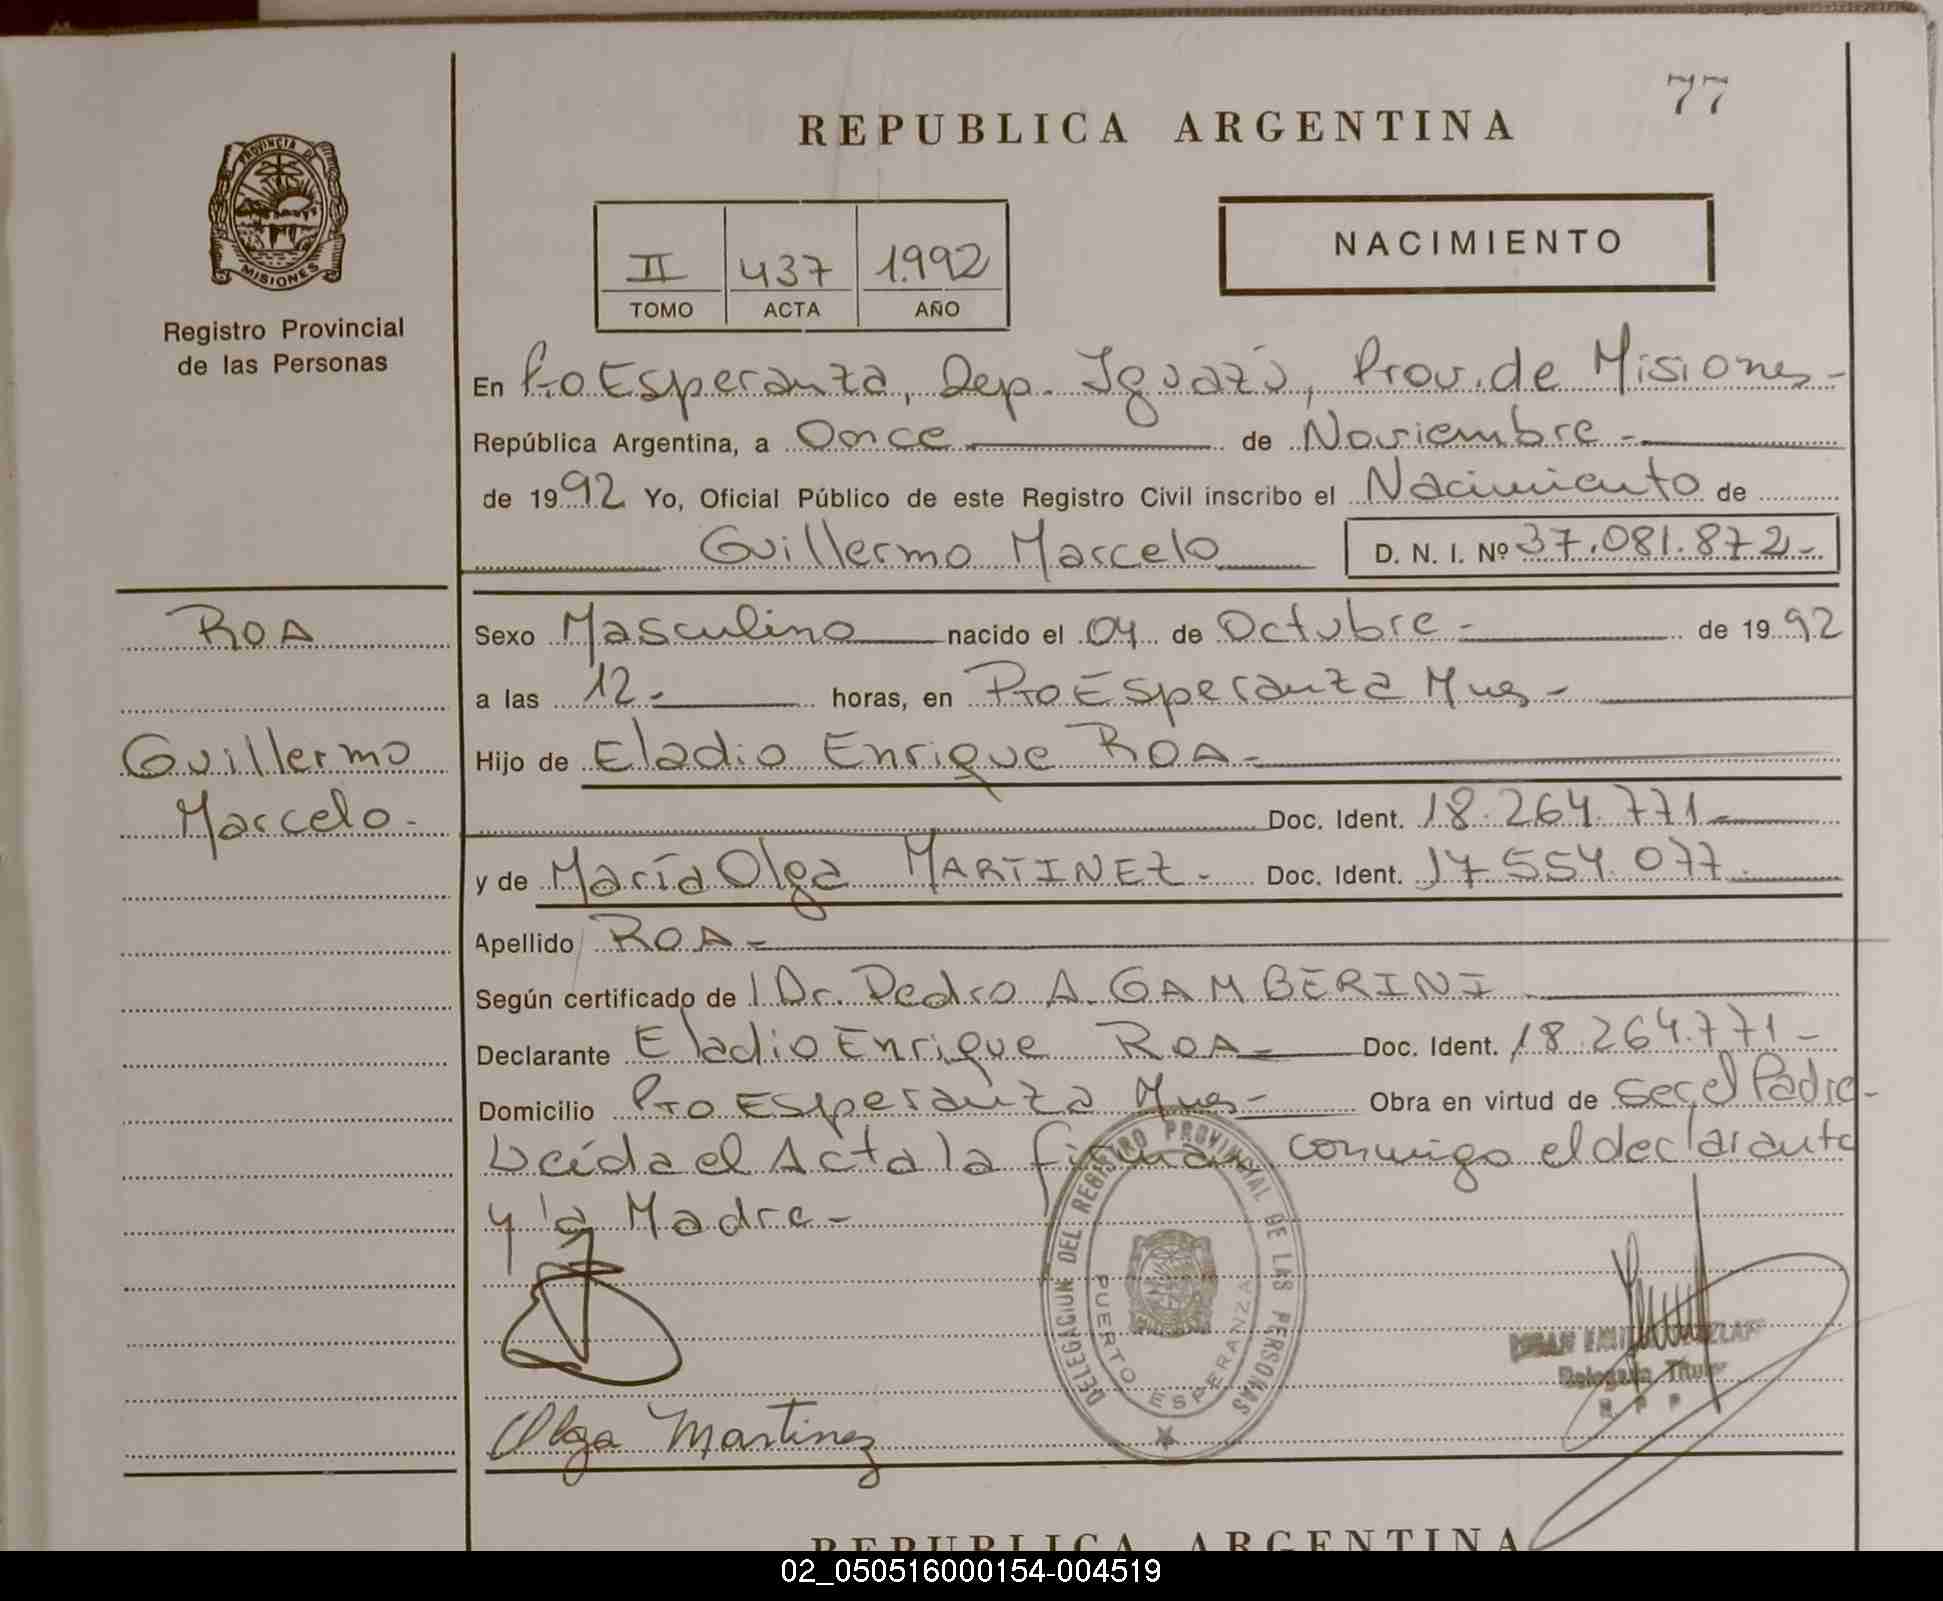 77
REPUBLICA ARGENTINA
PROVINCIA DE
MISIONES
Registro Provincial
de las Personas
II 437 1.992
TOMO ACTA AÑO
NACIMIENTO
En Pto Esperanza, Dep. Iguazú, Prov. de Misiones-
República Argentina, a Once de Noviembre-
de 1992 Yo, Oficial Público de este Registro Civil inscribo el Nacimiento de
Guillermo Marcelo D. N. I. Nº 37.081.872-
ROA
Guillermo
Marcelo-
Sexo Masculino nacido el 04 de Octubre- de 1992
a las 12- horas, en Pto Esperanza Mnes-
Hijo de Eladio Enrique ROA-
Doc. Ident. 18.264.771-
y de María Olga MARTINEZ- Doc. Ident. 17.554.077-
Apellido ROA-
Según certificado de Dr. Pedro A. GAMBERINI
Declarante Eladio Enrique ROA- Doc. Ident. 18.264.771-
Domicilio Pto Esperanza Mnes- Obra en virtud de ser el Padre-
Leída el Acta la firman conmigo el declarante
y la Madre-
DELEGACION DEL REGISTRO PROVINCIAL DE LAS PERSONAS
PUERTO ESPERANZA
Delegado Titular
R P P
Olga Martinez
REPUBLICA ARGENTINA
02_050516000154-004519